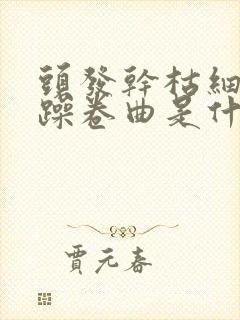 頭發幹枯細
躁卷曲是什
賈元春